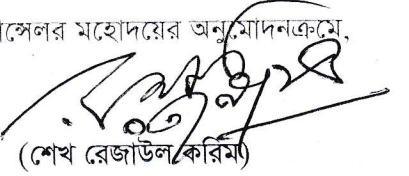 ন্সেলর মহোদয়ের অনুমোদনক্রমে,
(শেখ রেজাউল করিম)